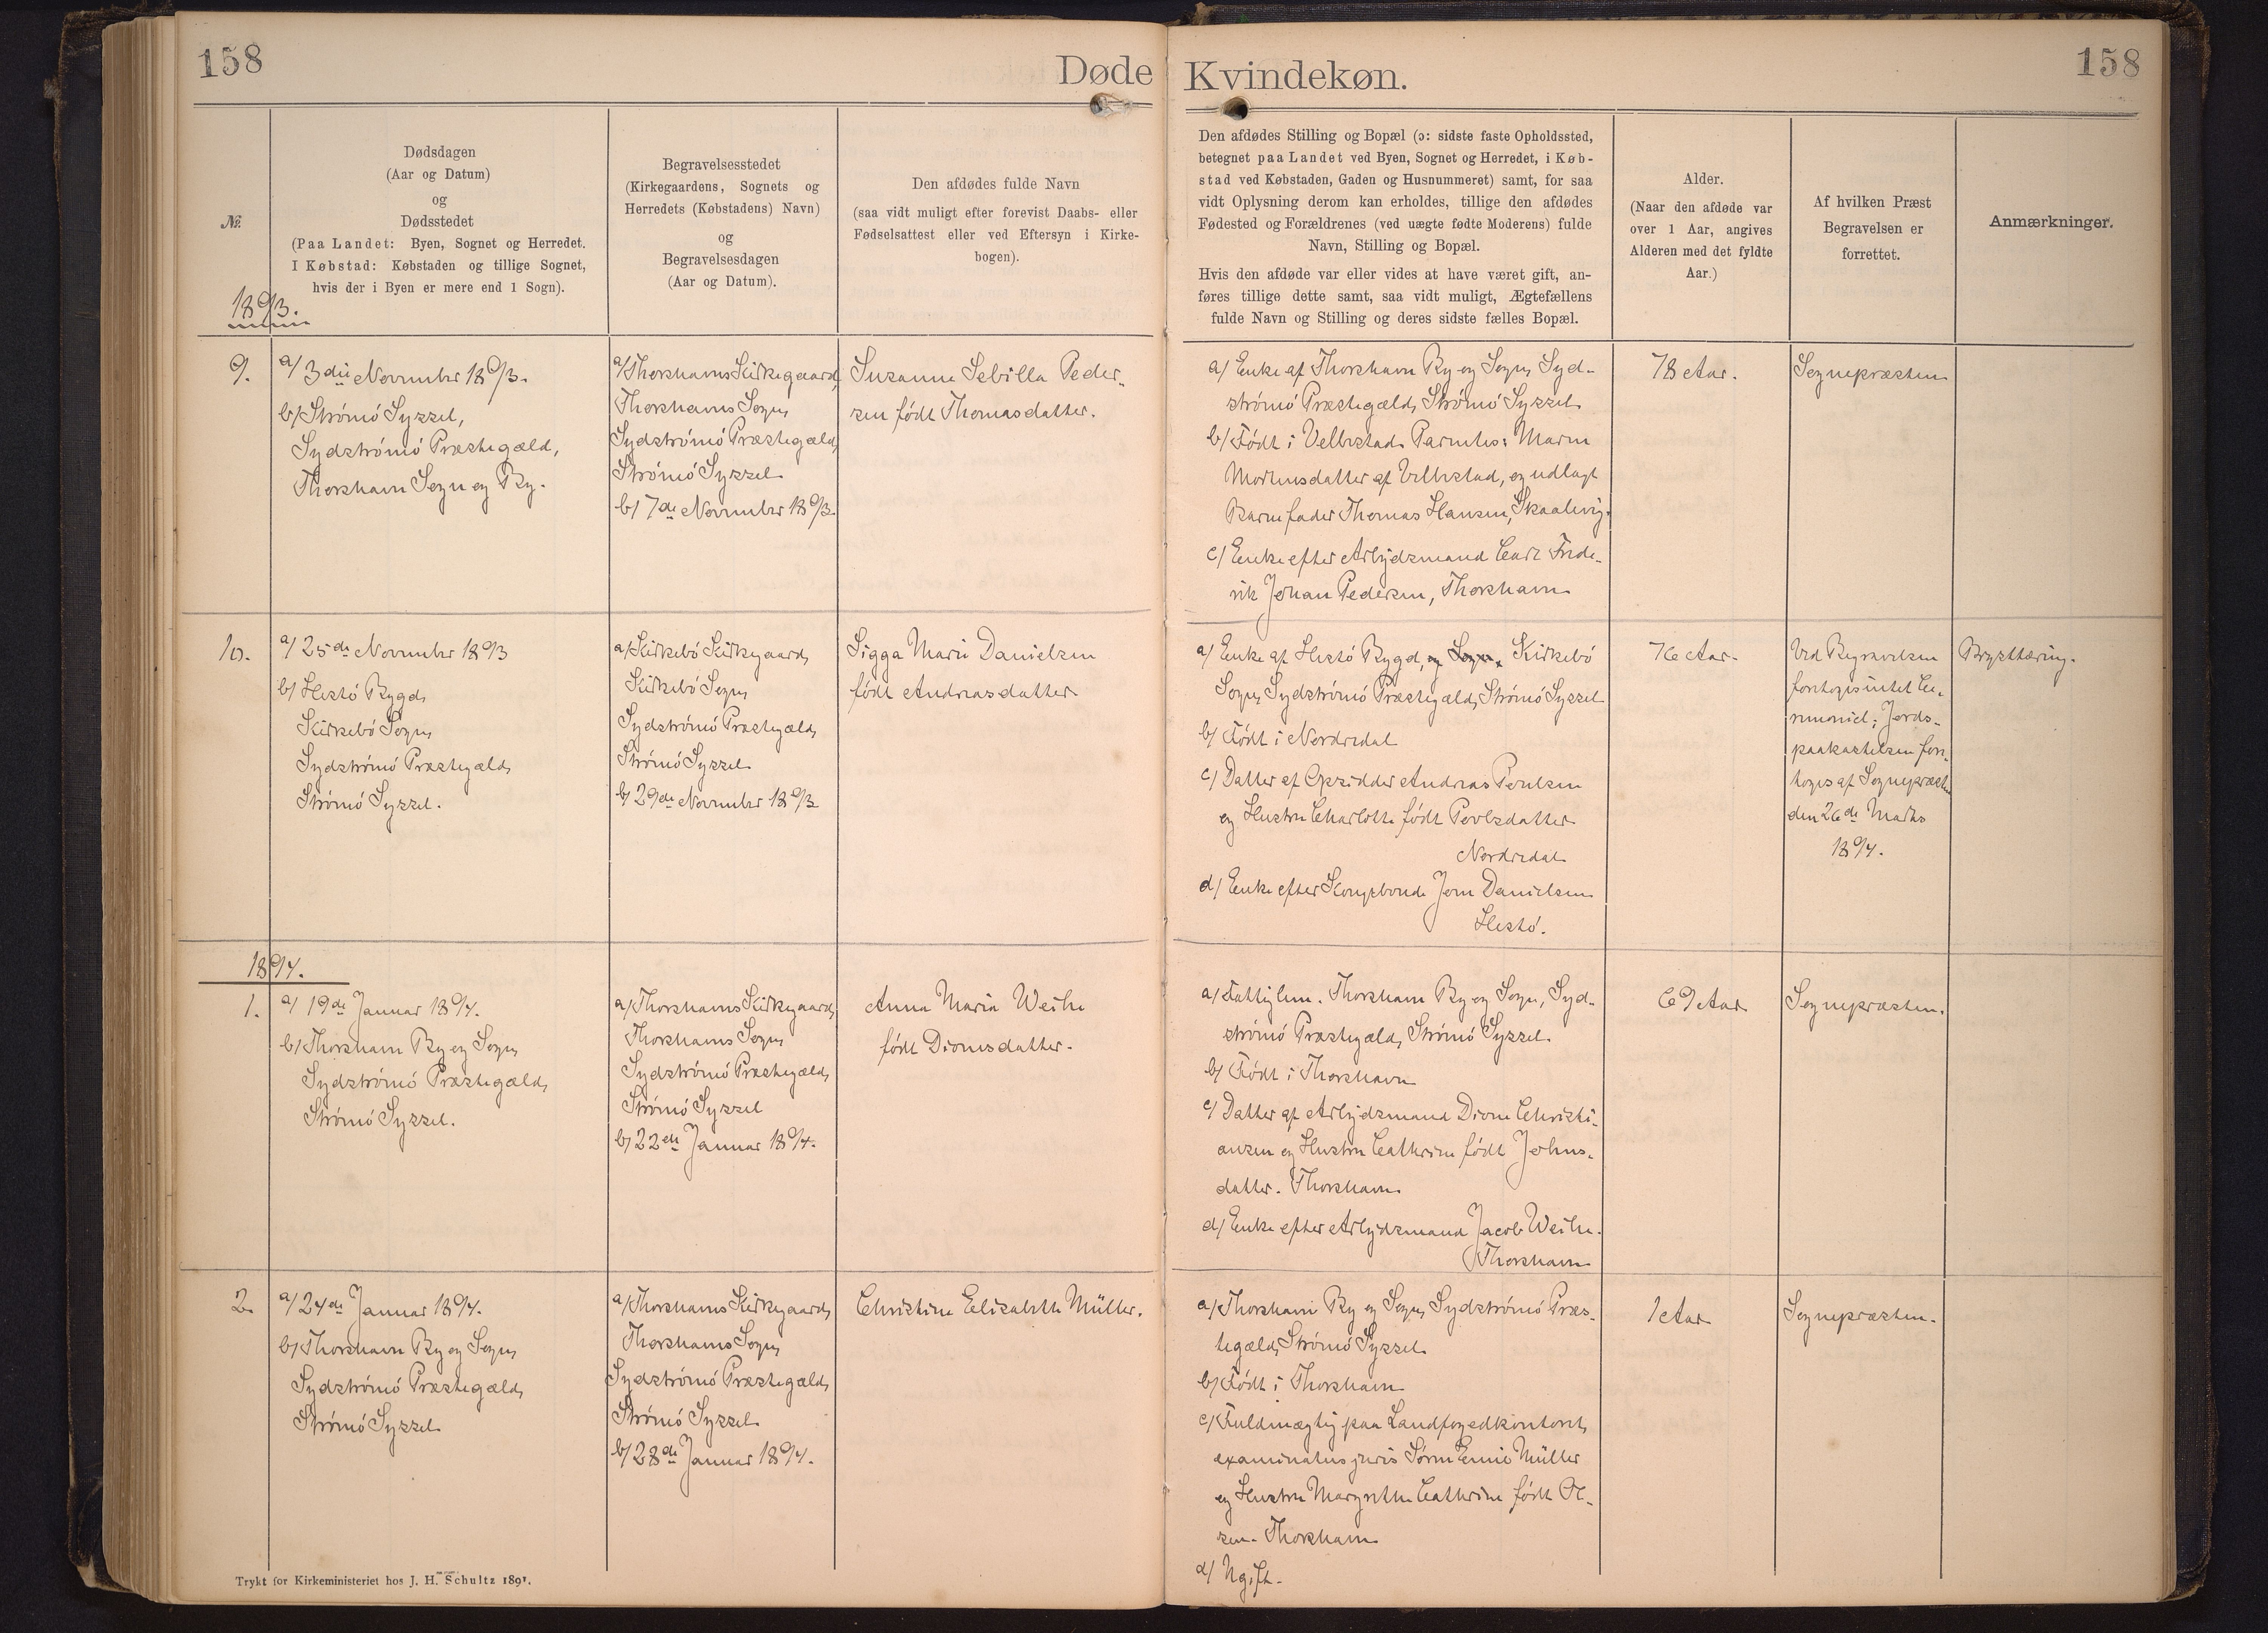 158
Døde
Kvindekøn.
158
№.
Dødsdagen
(Aar og Datum)
og
Dødsstedet
(Paa Landet: Byen, Sognet og Herredet.
I Købstad: Købstaden og tillige Sognet,
hvis der i Byen er mere end 1 Sogn).
Begravelsesstedet
(Kirkegaardens, Sognets og
Herredets (Købstadens) Navn)
og
Begravelsesdagen
(Aar og Datum).
Den afdødes fulde Navn
(saa vidt muligt efter forevist Daabs- eller
Fødselsattest eller ved Eftersyn i Kirke-
bogen).
Den afdødes Stilling og Bopæl (ɔ: sidste faste Opholdssted,
betegnet paa Landet ved Byen, Sognet og Herredet, i Køb-
stad ved Købstaden, Gaden og Husnummeret) samt, for saa
vidt Oplysning derom kan erholdes, tillige den afdødes
Fødested og Forældrenes (ved uægte fødte Moderens) fulde
Navn, Stilling og Bopæl.
Hvis den afdøde var eller vides at have været gift, an-
føres tillige dette samt, saa vidt muligt, Ægtefællens
fulde Navn og Stilling og deres sidste fælles Bopæl.
Alder.
(Naar den afdøde var
over 1 Aar, angives
Alderen med det fyldte
Aar.)
Af hvilken Præst
Begravelsen er
forrettet.
Anmærkninger.
1893.
9.
a/ 3die November 1893.
b/ Strømö Syssel,
Sydströmö Præstegæld,
Thorshavn Sogn og By.
a/ Thorshavns Kirkegaard,
Thorshavns Sogn,
Sydströmö Præstegæld,
Strömö Syssel
b/ 7de November 1893.
Susanne Sebilla Peder-
sen født Thomasdatter.
a/ Enke af Thorshavn By og Sogn, Syd-
strömö Præstegæld, Strömö Syssel
b/ Født i Velbestad. Parentes: Maren
Mortensdatter af Velbestad, og udlagt
Barnefader Thomas Hansen, Skaalevig.
c/ Enke efter Arbejdsmand Carl Frede-
rik Johan Pedersen, Thorshavn
78 Aar.
Sognepræsten
10.
a/ 25de November 1893
b/ Hestö Bygd,
Kirkebö Sogn,
Sydströmö Præstegæld,
Strömö Syssel.
a/ Kirkebö Kirkegaard,
Kirkebö Sogn,
Sydströmö Præstegæld,
Strömö Syssel
b/ 29de November 1893
Sigga Marie Danielsen
født Andreasdatter
a/ Enke af Hestö Bygd, og Sogn, Kirkebö
Sogn, Sydströmö Præstegæld, Strömö Syssel
b/ Født i Nordredal
c/ Datter af Opsidder Andreas Poulsen
og Hustru Charlotte født Povlsdatter
Nordredal
d/ Enke efter Kongsbonde Joen Danielsen
Hestö.
76 Aar.
Ved Begravelsen
foretoges intet Ce-
remoniel; Jords-
paakastelsen fore-
toges af Sognepræsten
den 26de Marts
1894.
Brysttæring.
1894.
1.
a/ 19de Januar 1894.
b/ Thorshavn By og Sogn,
Sydströmö Præstegæld,
Strömö Syssel.
a/ Thorshavns Kirkegaard,
Thorshavns Sogn,
Sydströmö Præstegæld,
Strömö Syssel
b/ 22de Januar 1894.
Anna Maria Weihe
født Dionesdatter.
a/ Fattiglem. Thorshavn By og Sogn, Syd-
strömö Præstegæld, Strömö Syssel.
b/ Født i Thorshavn
c/ Datter af Arbejdsmand Dione Christi-
ansen og Hustru Cathrine født Johns-
datter. Thorshavn.
d/ Enke efter Arbejdsmand Jacob Weihe.
Thorshavn
69 Aar
Sognepræsten.
2.
a/ 24de Januar 1894.
b/ Thorshavn By og Sogn,
Sydströmö Præstegæld,
Strömö Syssel
a/ Thorshavns Kirkegaard,
Thorshavns Sogn,
Sydströmö Præstegæld,
Strömö Syssel
b/ 28de Januar 1894.
Christine Elisabeth Müller.
a/ Thorshavn By og Sogn, Sydströmö Præs-
tegæld, Strömö Syssel
b/ Født i Thorshavn
c/ Fuldmægtig paa Landfogedkontoret,
examinatus juris Sören Emil Müller
og Hustru Maregrethe Cathrine født Ol-
sen. Thorshavn
d/ Ugift.
1 Aar
Sognepræsten.
Trykt for Kirkeministeriet hos J. H. Schultz 1891.